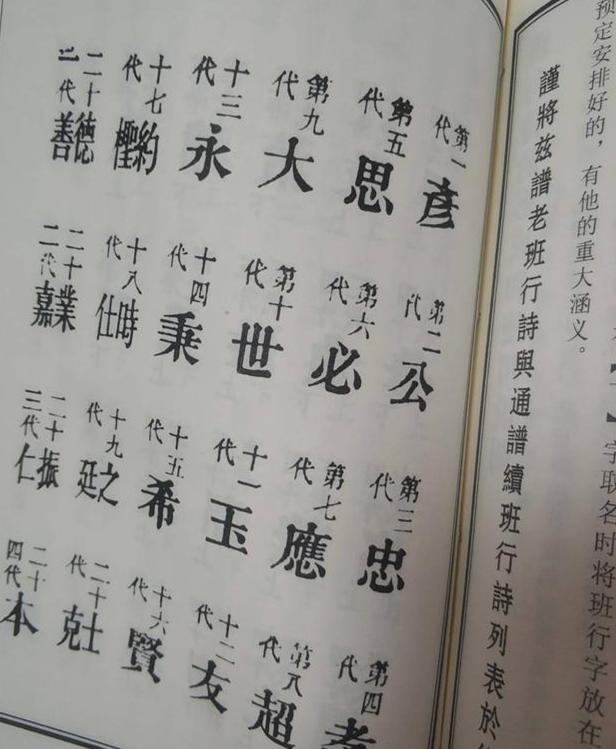 字取名时将班行字放在
预定安排好的，有他的重大涵义。
謹將兹譜老班行詩與通譜續班行詩列表於
第一代彥
第二代公
第三代忠
第四代
第五代思
第六代必
第七代應
第八代超
第九代大
第十代世
十一代玉
十二代友
十三代永
十四代秉
十五代希
十六代賢
十七代約樫
十八代時仕
十九代之廷
二十代士克
二十一代德善
二十二代業嘉
二十三代振仁
二十四代本